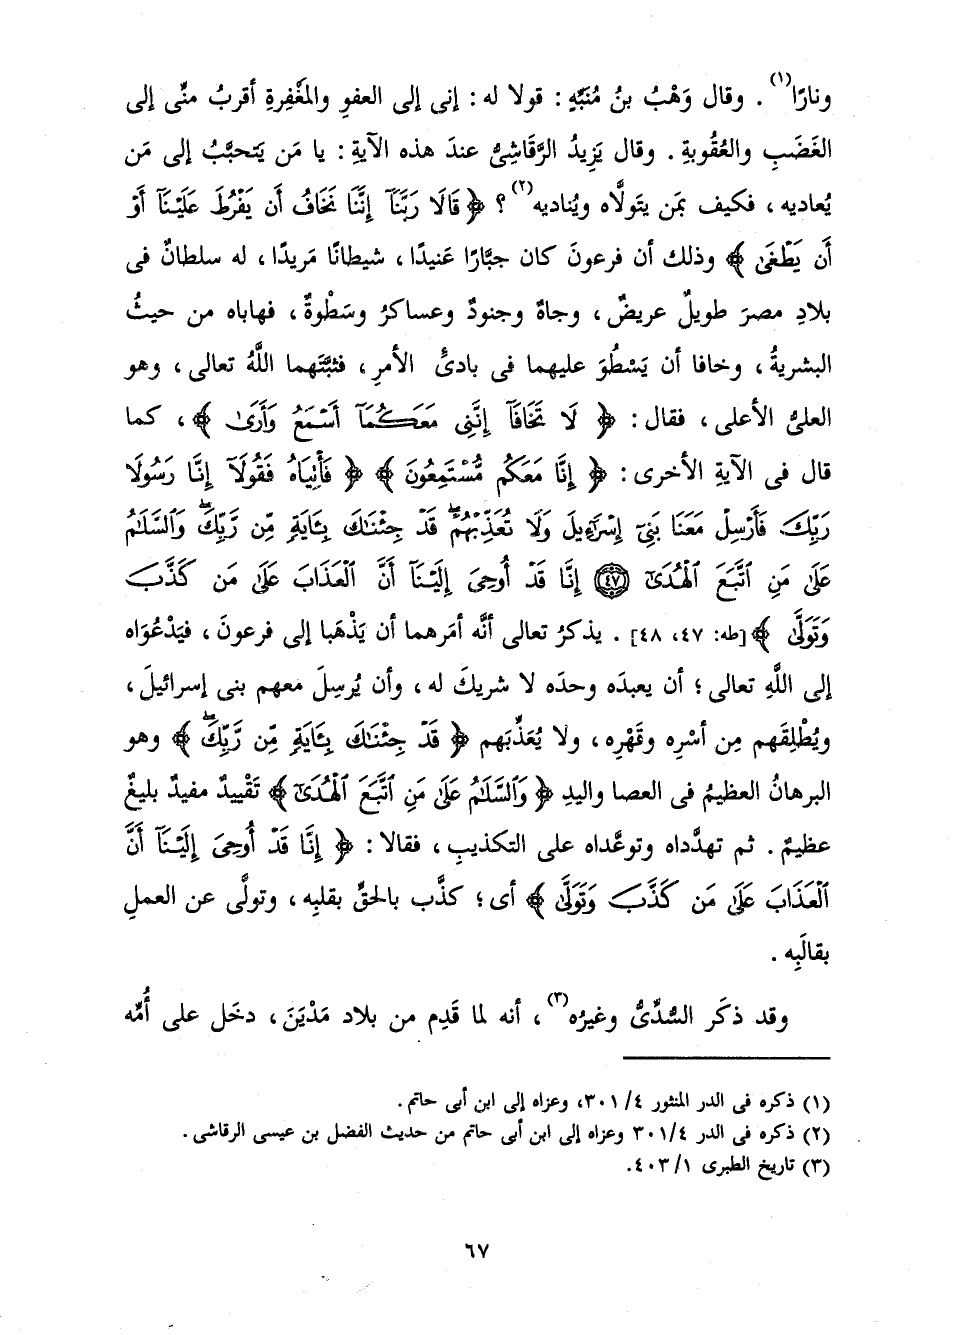 ونارًا(١) . وقال وَهْبُ بنُ مُنَبِّهٍ : قولا له : إنى إلى العفوِ والمَغْفِرةِ أقربُ منِّى إلى
الغَضَبِ والعُقُوبةِ . وقال يَزِيدُ الرَّقَاشِىُّ عندَ هذه الآيةِ : يا مَن يَتحبَّبُ إلى مَن
يُعاديه ، فكيف بمَن يتولَّاه ويُناديه(٢) ؟ ﴿ قَالَا رَبَّنَآ إِنَّنَا نَخَافُ أَن يَفْرُطَ عَلَيْنَآ أَوْ
أَن يَطْغَىٰ ﴾ وذلك أن فرعونَ كان جبَّارًا عَنيدًا ، شيطانًا مَريدًا ، له سلطانٌ فى
بلادِ مصرَ طويلٌ عريضٌ ، وجاهٌ وجنودٌ وعساكرُ وسَطْوةٌ ، فهاباه من حيثُ
البشريةُ ، وخافا أن يَسْطُوَ عليهما فى بادئِ الأمرِ ، فثبَّتَهما اللَّهُ تعالى ، وهو
العلىُّ الأعلى ، فقال : ﴿ لَا تَخَافَآ إِنَّنِى مَعَكُمَآ أَسْمَعُ وَأَرَىٰ ﴾ ، كما
قال فى الآيةِ الأخرى : ﴿ إِنَّا مَعَكُم مُّسْتَمِعُونَ ﴾ ﴿ فَأْتِيَاهُ فَقُولَآ إِنَّا رَسُولَا
رَبِّكَ فَأَرْسِلْ مَعَنَا بَنِىٓ إِسْرَٰٓءِيلَ وَلَا تُعَذِّبْهُمْۖ قَدْ جِئْنَٰكَ بِـَٔايَةٍ مِّن رَّبِّكَۖ وَٱلسَّلَٰمُ
عَلَىٰ مَنِ ٱتَّبَعَ ٱلْهُدَىٰٓ ٤٧ إِنَّا قَدْ أُوحِىَ إِلَيْنَآ أَنَّ ٱلْعَذَابَ عَلَىٰ مَن كَذَّبَ
وَتَوَلَّىٰ ﴾ [طه: ٤٧، ٤٨] . يذكرُ تعالى أنَّه أمَرهما أن يَذْهَبا إلى فرعونَ ، فيَدْعُوَاه
إلى اللَّهِ تعالى ؛ أن يعبدَه وحدَه لا شريكَ له ، وأن يُرسِلَ معهم بنى إسرائيلَ ،
ويُطْلِقَهم مِن أسْرِه وقَهْرِه ، ولا يُعَذِّبَهم ﴿ قَدْ جِئْنَٰكَ بِـَٔايَةٍ مِّن رَّبِّكَۖ ﴾ وهو
البرهانُ العظيمُ فى العصا واليدِ ﴿ وَٱلسَّلَٰمُ عَلَىٰ مَنِ ٱتَّبَعَ ٱلْهُدَىٰٓ ﴾ تَقْييدٌ مفيدٌ بليغٌ
عظيمٌ . ثم تهدَّداه وتوعَّداه على التكذيبِ ، فقالا : ﴿ إِنَّا قَدْ أُوحِىَ إِلَيْنَآ أَنَّ
ٱلْعَذَابَ عَلَىٰ مَن كَذَّبَ وَتَوَلَّىٰ ﴾ أى ؛ كذَّب بالحقِّ بقلبِه ، وتولَّى عن العملِ
بقالَبِه .
وقد ذكَر السُّدِّىُّ وغيرُه(٣) ، أنه لما قَدِم من بلاد مَدْيَنَ ، دخَل على أُمِّه
(١) ذكره فى الدر المنثور ٤/ ٣٠١، وعزاه إلى ابن أبى حاتم .
(٢) ذكره فى الدر ٣٠١/٤ وعزاه إلى ابن أبى حاتم من حديث الفضل بن عيسى الرقاشى .
(٣) تاريخ الطبرى ١/ ٤٠٣.
٦٧